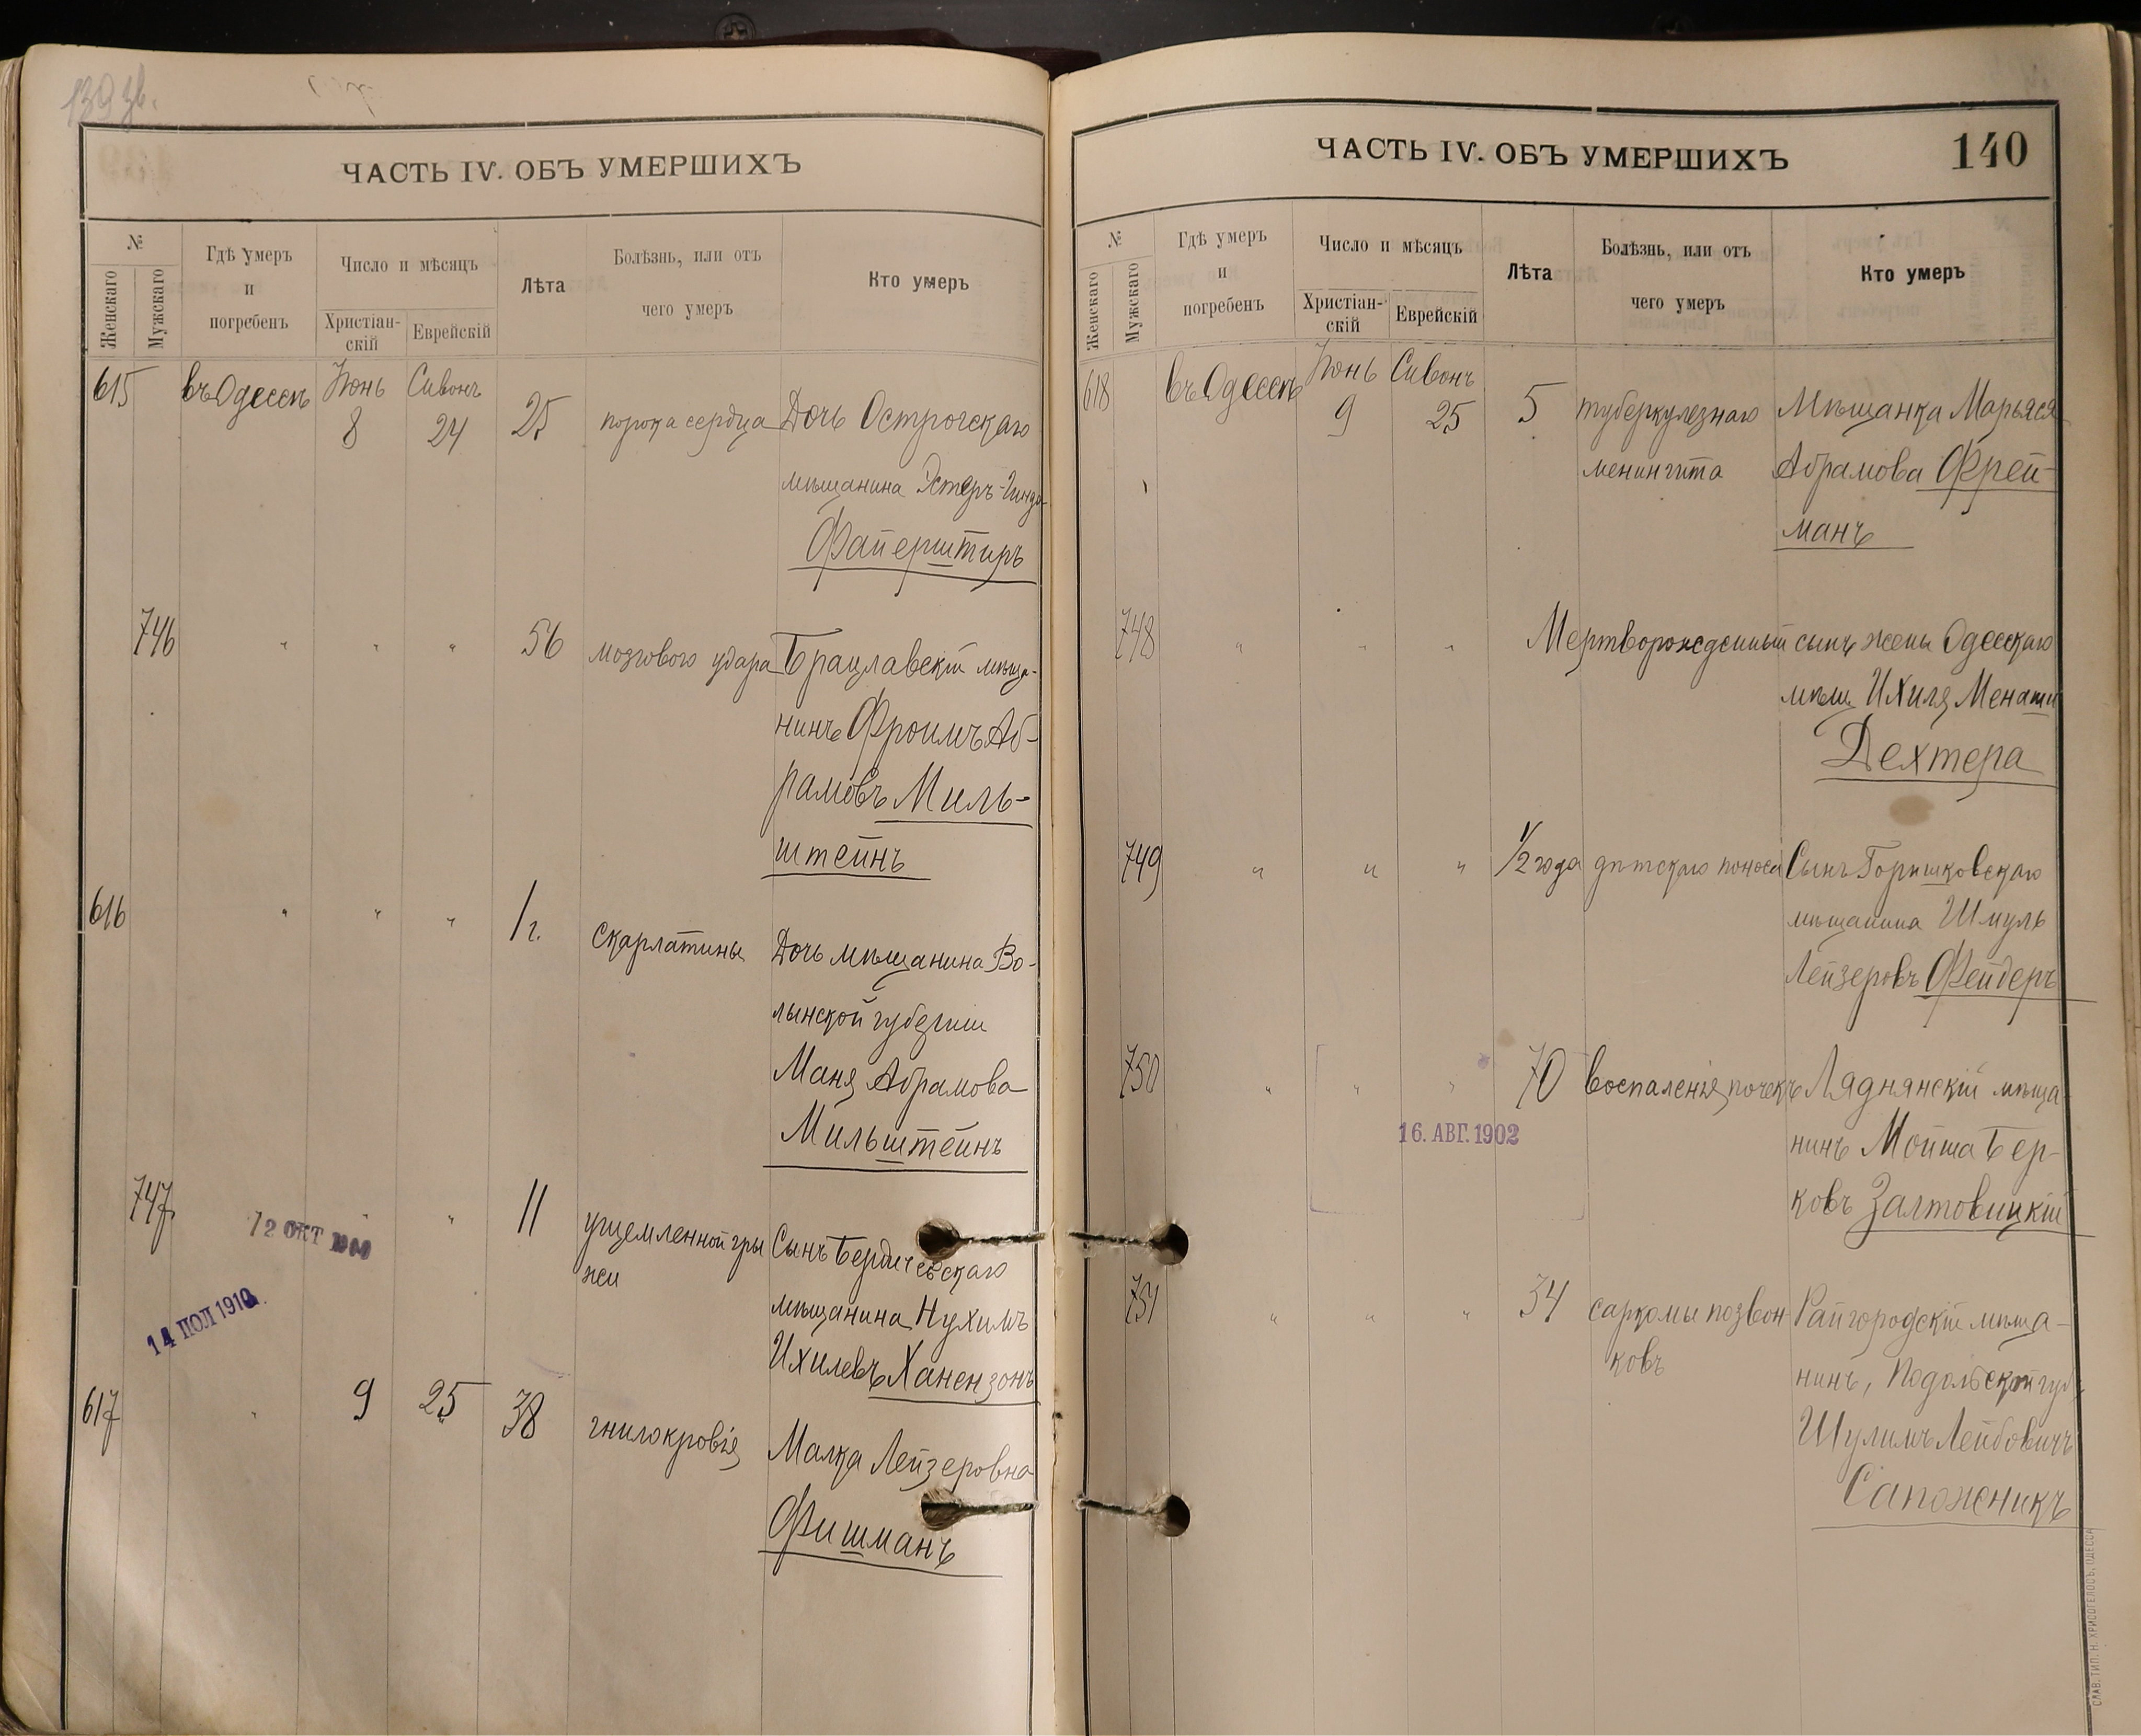 139 зв.
ЧАСТЬ IV. ОБЪ УМЕРШИХЪ
№
Женскаго
Мужскаго
Гдѣ умеръ
и
погребенъ
Число и мѣсяцъ
Христіан-
скій
Еврейскій
Лѣта
Болѣзнь, или отъ
чего умеръ
Кто умеръ
615 въ Одессѣ Іюнь 8 Сивонъ 24 25 порока сердца Дочь Острогскаго
мѣщанина Эстеръ-Гинда
Файерштиръ
746 " " " 56 мозгового удара Брацлавскій мѣща-
нинъ Фроимъ Аб-
рамовъ Миль-
штейнъ
616 " " " 1 г. скарлатины Дочь мѣщанина Во-
лынской губерніи
Маня Абрамова
Мильштейнъ
747 " " 11 ущемленной гры Сынъ Бердичевскаго
жи
мѣщанина Нухимъ
Ихилевъ Ханензонъ
12 ОКТ
14 ПОЛ 1910
617 " 9 25 38 гнилокровія Малка Лейзеровна
Фишманъ
ЧАСТЬ IV. ОБЪ УМЕРШИХЪ
140
№
Женскаго
Мужскаго
Гдѣ умеръ
и
погребенъ
Число и мѣсяцъ
Христіан-
скій
Еврейскій
Лѣта
Болѣзнь, или отъ
чего умеръ
Кто умеръ
618 въ Одессѣ Іюнь 9 Сивонъ 25 5 туберкулезнаго Мѣщанка Марьяся
менингита Абрамова Фрей-
манъ
748 " " " Мертворожденный сынъ жены Одесскаго
мѣщ Ихиля Менаши
Дехтера
749 " " " 1/2 года дѣтскаго поноса Сынъ Горишковскаго
мѣщанина Шмуль
Лейзеровъ Фейдеръ
750 " " " 70 воспаленія почекъ Ляднянскій мѣща
нинъ Мойша Бер-
ковъ Залтовицкій
16. АВГ. 1902
751 " " " 34 саркомы позвон- Райгородскій мѣща-
ковъ
нинъ, Подольской губ.
Шулимъ Лейбовичъ
Сапожникъ
СЛАВ. ТИП. Н. ХРИСОГЕЛОСЪ, ОДЕССА